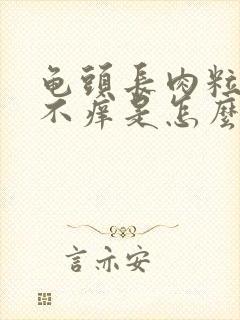 龟頭長肉粒
不痒是怎麼
言亦安